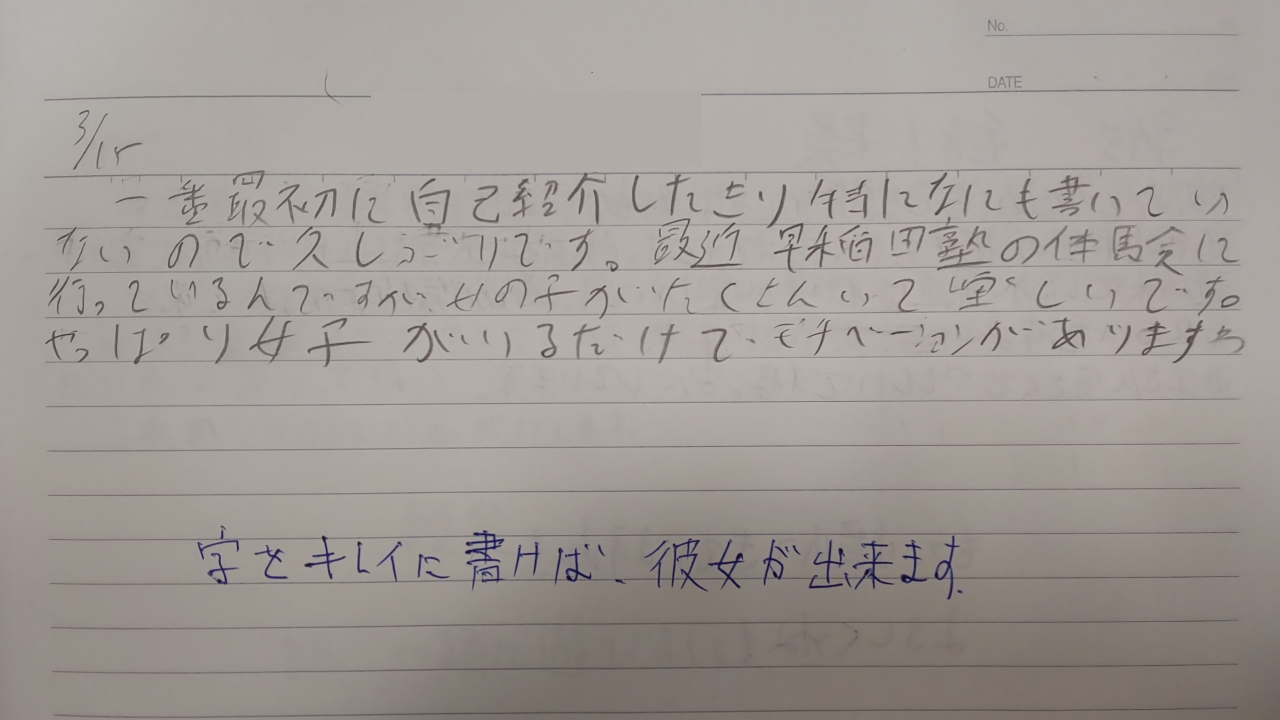 No.
DATE
3/15
一番最初に自己紹介したきり特になにも書いてい
ないので久しぶりです。最近早稲田塾の体験会に
行っているんですが、女の子がたくさんいて楽しいです。
やっぱり女子がいるだけでモチベーションがありますね
字をキレイに書けば、彼女が出来ます。